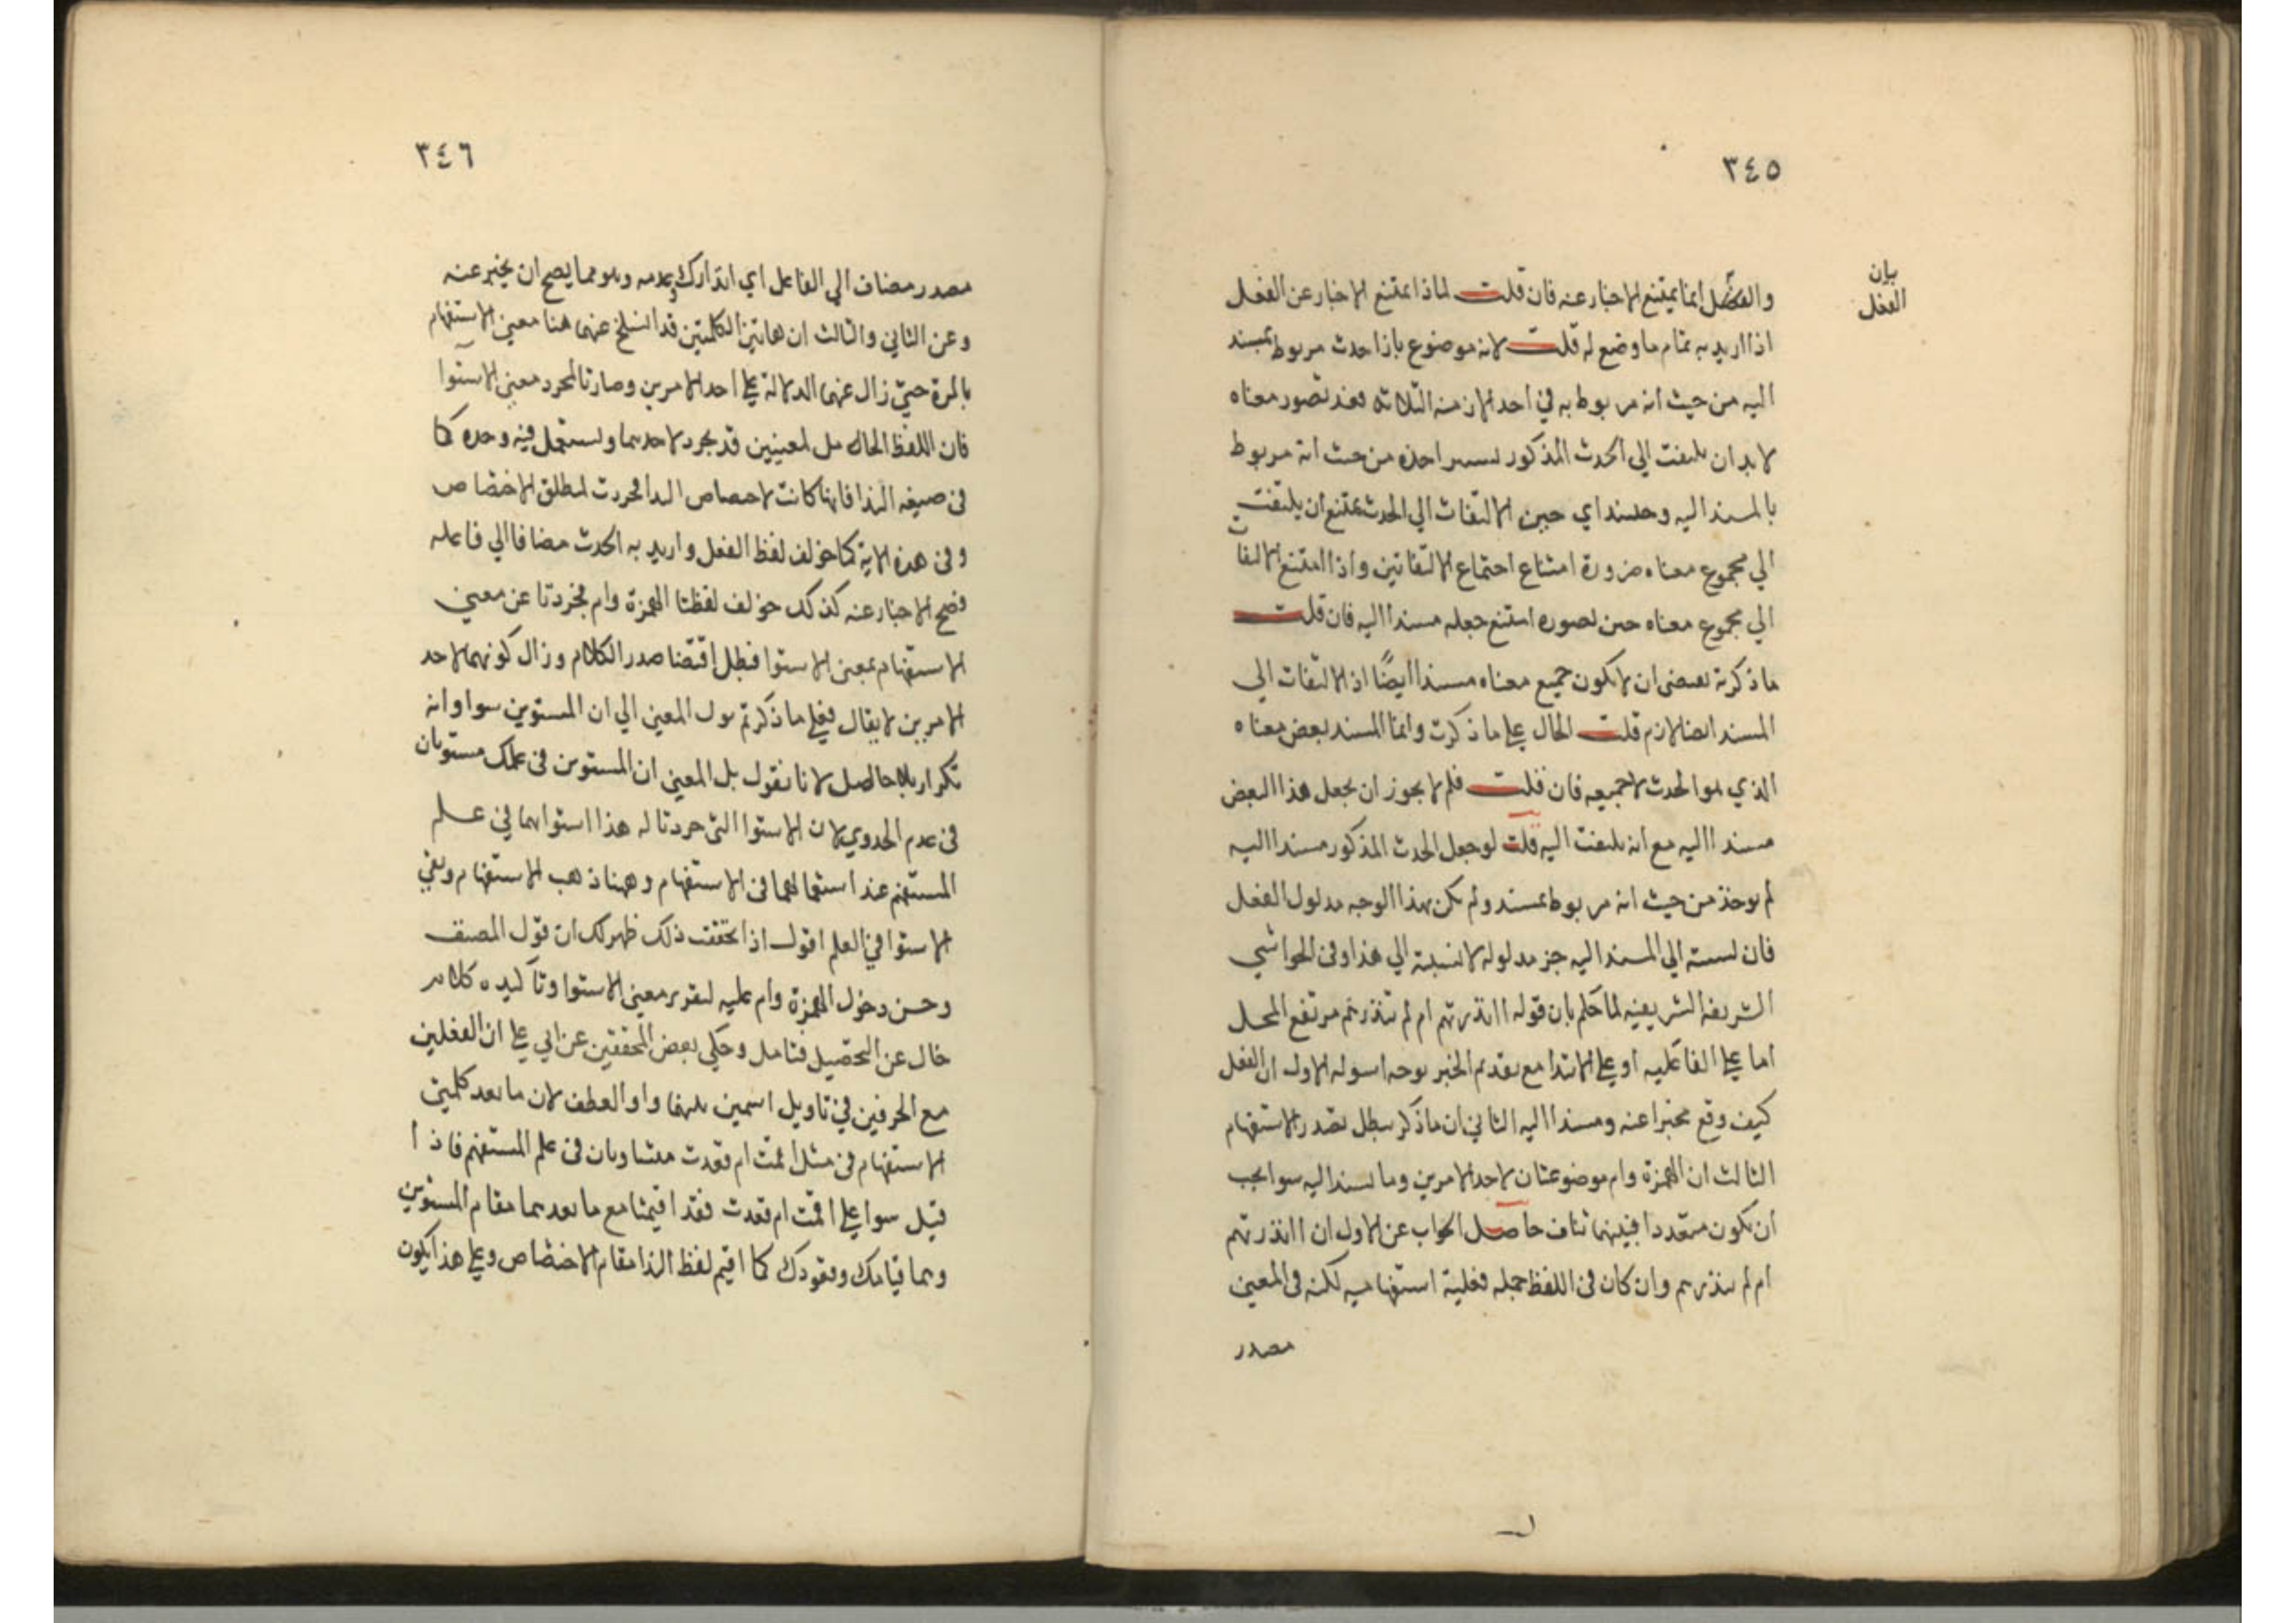 ٣٤٥
بيان
الفعل
والفعل انما يمتنع الاخبار عنه فان قلت لماذا يمتنع الاخبار عن الفعل
اذا اريد به تمام ما وضع له قلت لانه موضوع بازا حدث مربوط بمسند
اليه من حيث انه مربوط به في احد الازمنه الثلاثه فعند تصور معناه
لا بد ان يلتفت الي الحدث المذكور احذه من حيث انه مربوط
بالمسند اليه وحينئذ اي حين الالتفات الي الحدث يمتنع ان يلتفت
الي مجموع معناه ضرورة امتناع اجتماع الالتفاتين واذا امتنع الالتفات
الي مجموع معناه حين تصوره امتنع جعله مسندا اليه فان قلت
ما ذكرته يقتضى ان لا يكون جميع معناه مسندا ايضًا اذ الالتفات الي
المسند ايضا لازم قلت الحال علي ما ذكرت وانما المسند بعض معناه
الذي هو الحدث لا جميعه فان قلت فلم لا يجوز ان يجعل هذا البعض
مسندا اليه مع انه يلتفت اليه قلت لو جعل الحدث المذكور مسندا اليه
لم يوخذ من حيث انه مربوط بمسند ولم يكن بهذا الوجه مدلول الفعل
فان نسبته الي المسند اليه جز مدلوله لا نسبته الي هذا وفي الحواشي
الشريفه الشريفيه لما حكم بان قوله اانذرتهم ام لم تنذرهم مرتفع المحل
اما علي الفاعليه او علي الابتدا مع تقديم الخبر توجه اسوله الاول ان الفعل
كيف وقع مخبرا عنه ومسندا اليه الثاني ان ما ذكر يبطل تصدر الاستفهام
الثالث ان الهمزة وام موضوعتان لاحد الامرين وما يسند اليه سوا يجب
ان يكون متعددا فبينهما تناف حاصل الجواب عن الاول ان اانذرتهم
ام لم تنذرهم وان كان في اللفظ جمله فعلية استفهاميه لكنه في المعني
مصدر
٣٤٦
مصدر مضاف الي الفاعل اي انذارك وعدمه وهو مما يصح ان يخبر عنه
وعن الثاني والثالث ان هاتين الكلمتين قد انسلخ عنهما هنا معني الاستفهام
بالمرة حتي زال عنهما الدلالة علي احد الامرين وصارتا لمجرد معني الاستوا
فان اللفظ الحامل لمعنيين قد يجرد لاحدهما ويستعمل فيه وحده كما
في صيغه الندا فانها كانت لاختصاص الندا فجردت لمطلق الاختصاص
وفي هذه الاية كما خولف لفظ الفعل واريد به الحدث مضافا الي فاعله
فصح الاخبار عنه كذلك خولف لفظتا الهمزة وام فجردتا عن معني
الاستفهام بمعني الاستوا فبطل اقتضا صدر الكلام وزال كونهما لاحد
الامرين لا يقال فعلي ما ذكرتم يول المعني الي ان المستويين سوا وانه
تكرار بلا حاصل لانا نقول بل المعني ان المستويين في علمك مستويان
في عدم الجدوي لان الاستوا التي جردتا له هذا استواهما في علم
المستفهم عند استعمالهما في الاستفهام وهنا ذهب الاستفهام وبقي
الاستوا في العلم اقول اذا تحققت ذلك ظهر لك ان قول المصنف
وحسن دخول الهمزة وام عليه لتقرير معني الاستوا وتاكيده كلام
خال عن التحصيل فتامل وحكي بعض المحققين عن ابي علي ان الفعلين
مع الحرفين في تاويل اسمين بينهما واو العطف لان ما بعد كلمتي
الاستفهام في مثل اقمت ام قعدت متساويان في علم المستفهم فاذا
قيل سوا علي اقمت ام قعدت فقد اقيمتا مع ما بعدهما مقام المستويين
وهما قيامك وقعودك كما اقيم لفظ الندا مقام الاختصاص وعلي هذا يكون